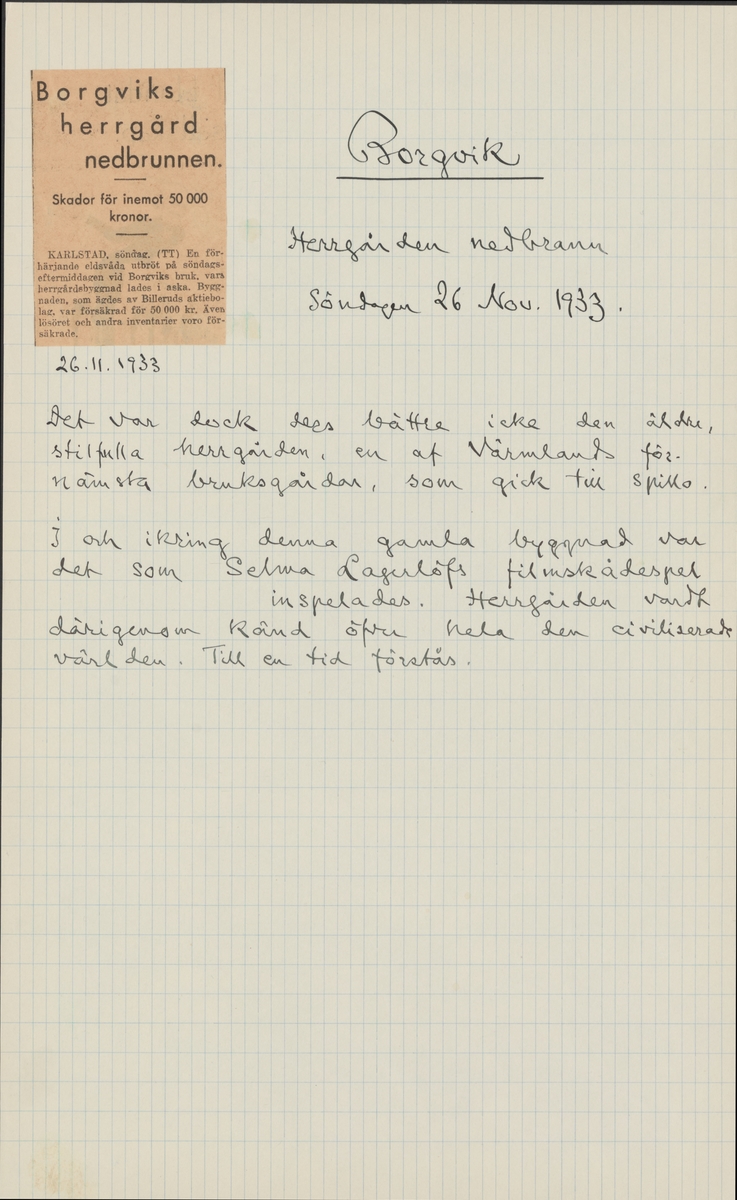 Borgviks
herrgård
nedbrunnen.
Skador för inemot 50 000
kronor.
KARLSTAD, söndag. (TT) En för-
härjande eldsvåda utbröt på söndags-
eftermiddagen vid Borgviks bruk, vars
herrgårdsbyggnad lades i aska. Bygg-
naden, som ägdes av Billeruds aktiebo-
lag, var försäkrad för 50 000 kr. Även
lösöret och andra inventarier voro för-
säkrade.
26.11.1933
Borgvik
Herrgården nedbrann
Söndagen 26 Nov. 1933.
Det var dock dess bättre icke den äldre,
stilfulla herrgården, en af Värmlands för-
nämsta bruksgårdar, som gick till spillo.
I och ikring denna gamla byggnad var
det som Selma Lagerlöfs filmskådespel
inspelades. Herrgården vardt
därigenom känd öfver hela den civiliserade
världen. Till en tid förstås.